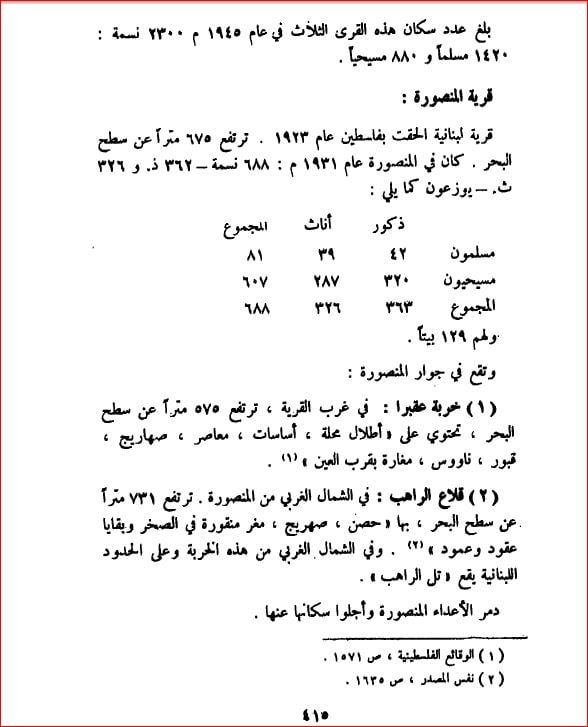 بلغ عدد سكان هذه القرى الثلاث في عام ١٩٤٥ م ٢٣٠٠ نسمة :
١٤٢٠ مسلماً و ٨٨٠ مسيحياً .
قرية المنصورة :
قرية لبنانية الحقت بفلسطين عام ١٩٢٣ . ترتفع ٦٧٥ متراً عن سطح
البحر . كان في المنصورة عام ١٩٣١ م : ٦٨٨ نسمة – ٣٦٢ ذ. و ٣٢٦
ث. – يوزعون كما يلي :
ذكور أناث المجموع
مسلمون ٤٢ ٣٩ ٨١
مسيحيون ٣٢٠ ٢٨٧ ٦٠٧
المجموع ٣٦٣ ٣٢٦ ٦٨٨
ولهم ١٢٩ بيتاً .
وتقع في جوار المنصورة :
(١) خربة عقبرا : في غرب القرية ، ترتفع ٥٧٥ متراً عن سطح
البحر ، تحتوي على «أطلال محلة ، أساسات ، معاصر ، صهاريج ،
قبور ، ناووس ، مغارة بقرب العين » (١) .
(٢) قلاع الراهب : في الشمال الغربي من المنصورة . ترتفع ٧٣١ متراً
عن سطح البحر ، بها « حصن ، صهريج ، مغر منقورة في الصخر وبقايا
عقود وعمود » (٢) . وفي الشمال الغربي من هذه الخربة وعلى الحدود
اللبنانية يقع « تل الراهب » .
دمر الأعداء المنصورة وأجلوا سكانها عنها .
(١) الوقائع الفلسطينية ، ص ١٥٧١ .
(٢) نفس المصدر ، ص ١٦٣٥ .
٤١٥